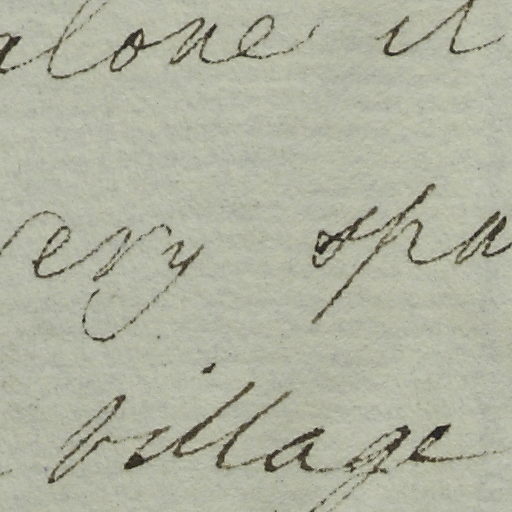 alone it
very spa
village